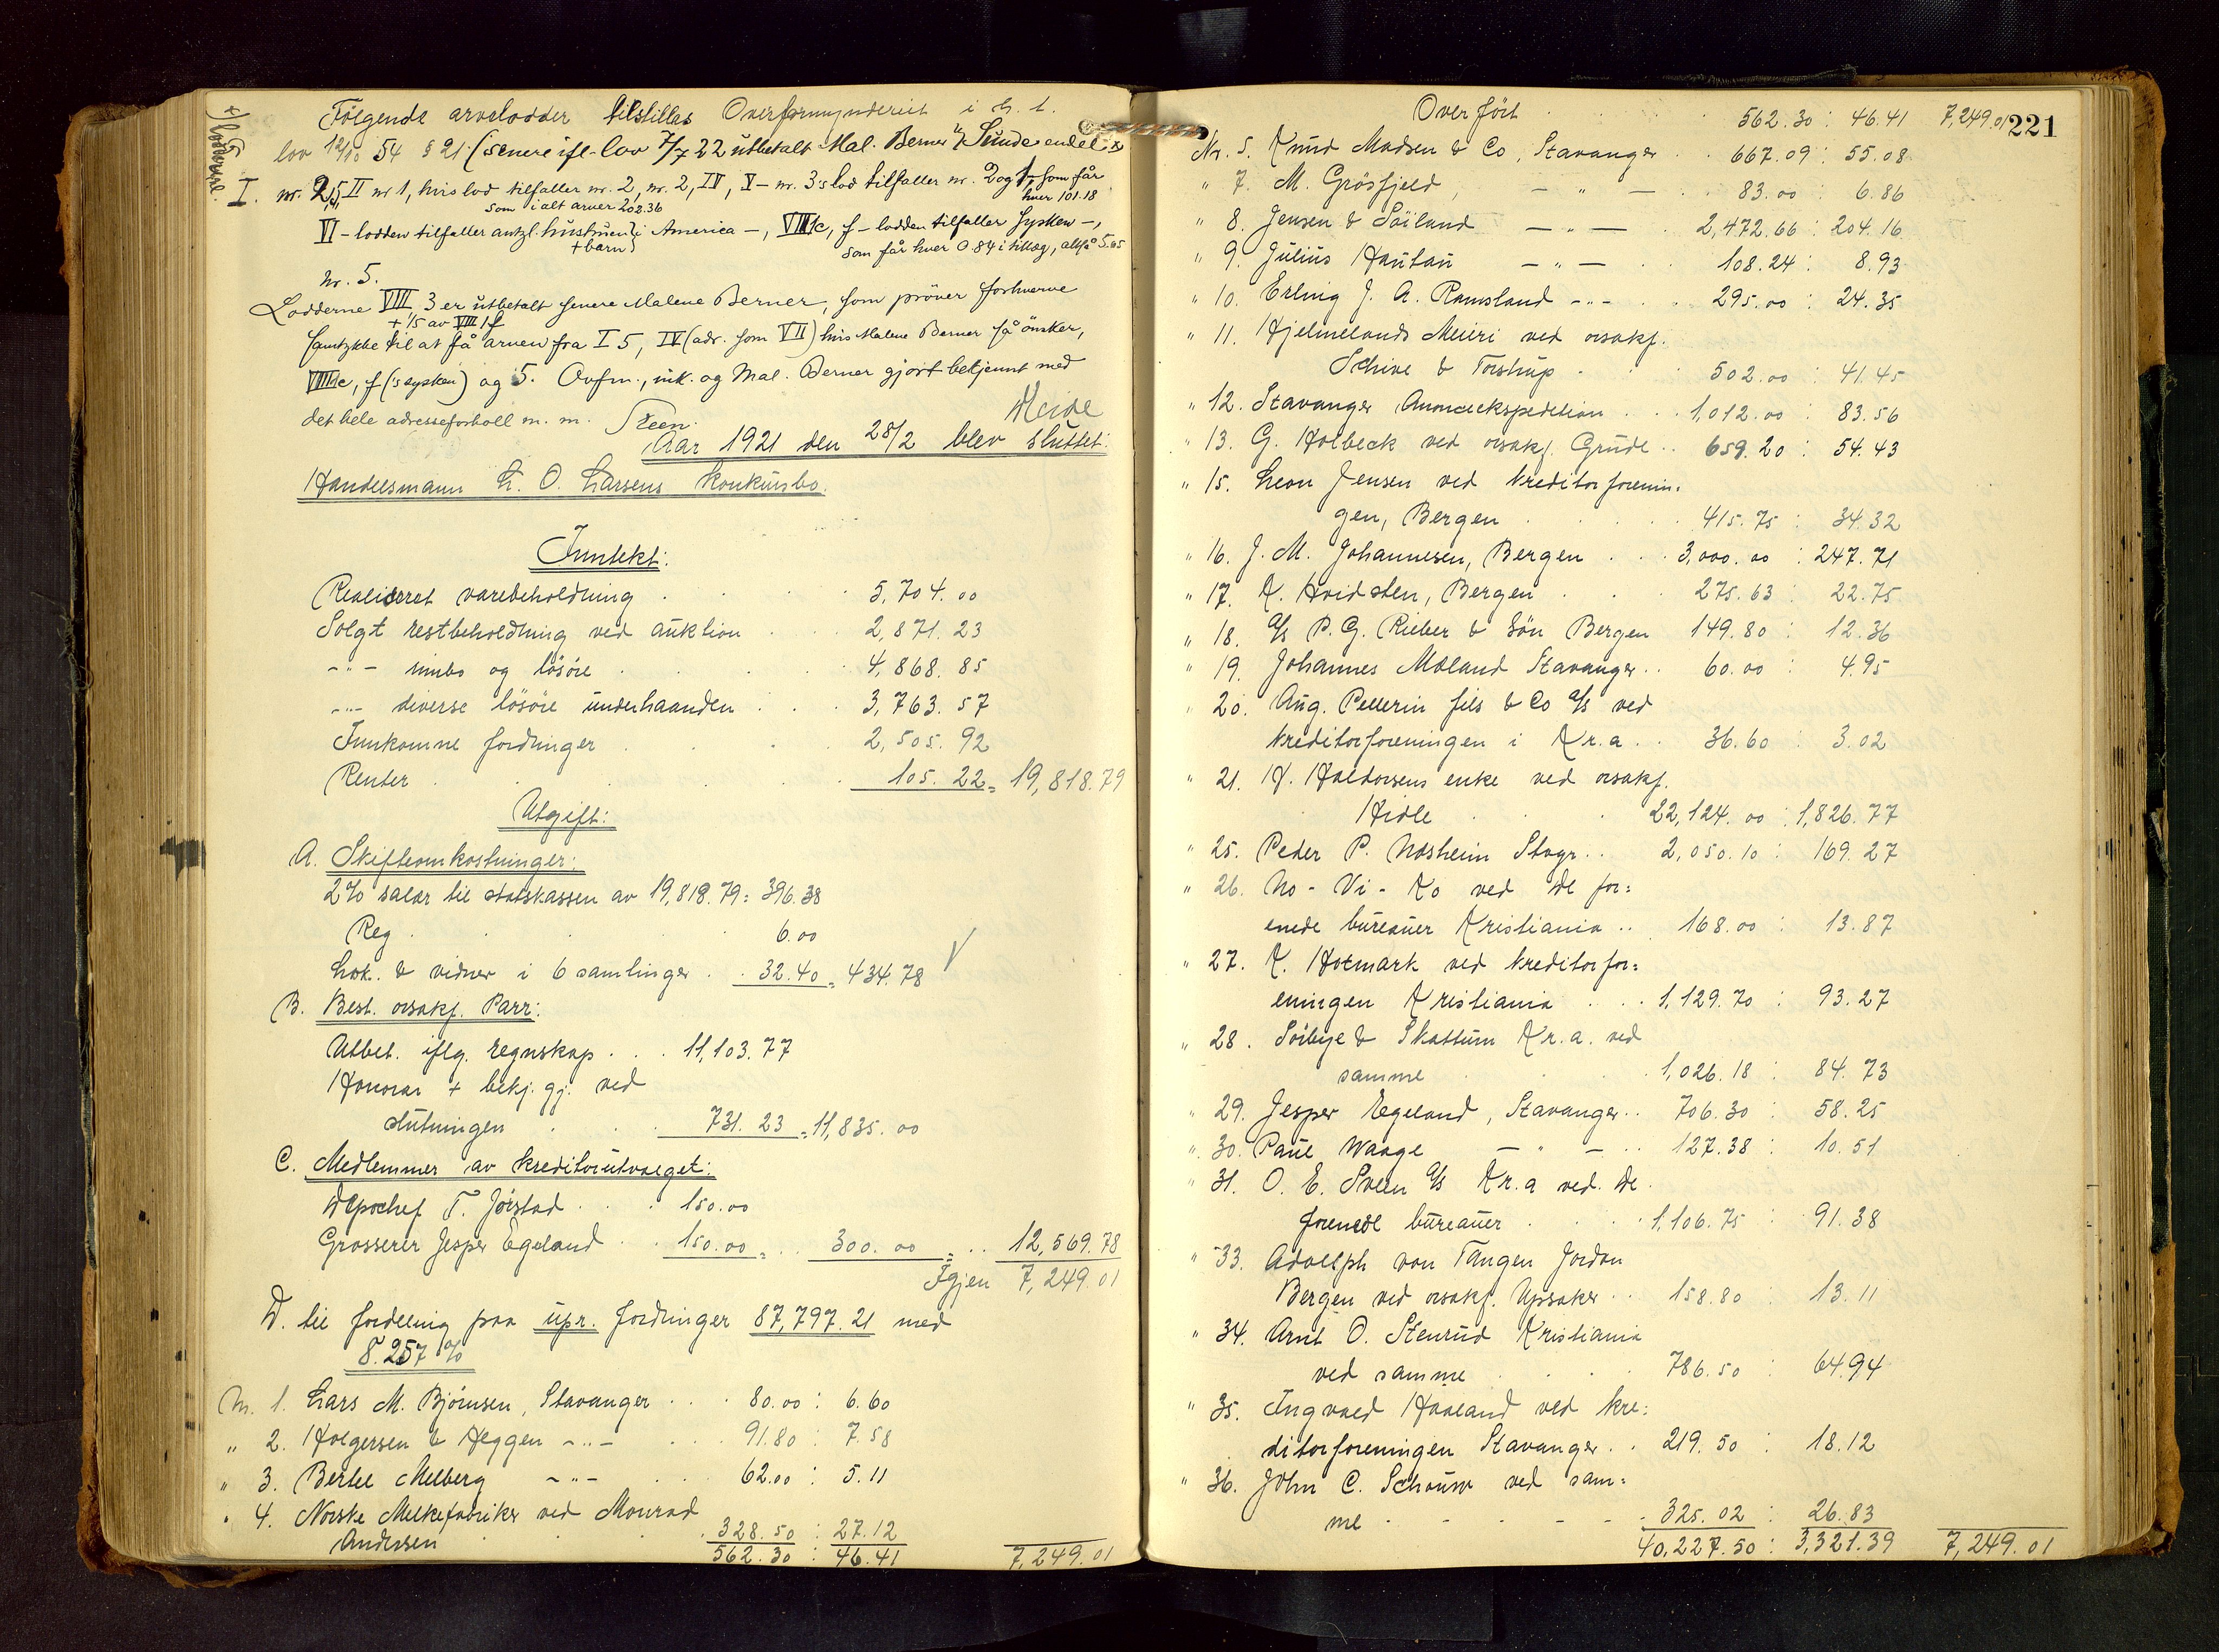 Følgende arvelodder tilstilles Overformynderiet i h. t.
lov 12/10 54 § 21 (senere ifl. lov 7/7 22 utbetalt Mal. Berner Sunde endel
x) lodderne
I. nr. 2, 5, II nr 1, hvis lod tilfaller nr. 2, nr. 2, IV, V – nr. 3's lod tilfaller nr. 2 og 1, som får
som ialt arver 202.36 hver 101.18
VI – lodden tilfaller antgl. hustruen i America –, VIII 1c, f – lodden tilfaller sysken –,
+ barn som får hver 0.84 i tillæg, altså 5.65
nr. 5.
Lodderne VIII 3 er utbetalt senere Malene Berner, som prøver forhverve
+ 1/5 av VIII 1 f
samtykke til at få arven fra I 5, IV (adr. som VII) hvis Malene Berner så ønsker,
VIII 1c, f (s sysken) og 5. Ovfm., ink. og Mal. Berner gjort bekjennt med
det hele adresseforholl m. m. Steen.
Heide
Aar 1921 den 28/2 blev sluttet:
Handelsmann L. O. Larsens konkursbo.
Inntekt:
Realiseret varebeholdning . . . 5,704.00
Solgt restbeholdning ved auktion . . 2,871.23
– " – innbo og løsøre . . . 4,868.85
– " – diverse løsøre underhaanden . . . 3,763.57
Innkomne fordringer . . . 2,505.92
Renter . . . 105.22 = 19,818.79
Utgift:
A. Skifteomkostninger:
2% salær til statskassen av 19,818.79 = 396.38
Reg . . . 6.00
Lok. & vidner i 6 samlinger . . 32.40 = 434.78
B. Best. orsakf. Parr:
Utbet. iflg. regnskap . . . 11,103.77
Honorar + bekj. gj. ved
slutningen . . . 731.23 = 11,835.00
C. Medlemmer av kreditorutvalget:
Depochef T. Jørstad . . . 150.00
Grosserer Jesper Egeland . . 150.00 = . . 300.00 = . . 12,569.78
Igjen 7,249.01
D. til fordeling paa upr. fordringer 87,797.21 med
8.257 %
Nr. 1. Lars M. Bjørnsen, Stavanger . . . 80.00 : 6.60
" 2. Holgersen & Heggen – " – . . . 91.80 : 7.58
" 3. Bertel Melberg – " – . . . 62.00 : 5.11
" 4. Norske Melkefabriker ved Monrad
Andersen . . . 328.50 : 27.12
562.30 : 46.41 7,249.01
221
Overført . . . 562.30 : 46.41 7,249.01
Nr. 5. Knud Madsen & Co, Stavanger . . 667.09 : 55.08
" 7. M. Grøsfjeld, – " – 83.00 : 6.86
" 8. Jensen & Søiland – " – 2,472.66 : 204.16
" 9. Julius Hautau – " – 108.24 : 8.93
" 10. Erling J. A. Ramsland – " – 295.00 : 24.35
" 11. Hjelmelands Meieri ved orsakf.
Schive & Torstrup . . . 502.00 : 41.45
" 12. Stavanger Annoncekspedition . . . 1,012.00 : 83.56
" 13. G. Holbeck ved orsakf. Grude . . 659.20 : 54.43
" 15. Leon Jensen ved kreditorforenin-
gen, Bergen . . . 415.75 : 34.32
" 16. J. M. Johannesen, Bergen . . . 3,000.00 : 247.71
" 17. K. Hvidsten, Bergen . . . 275.63 : 22.75
" 18. A/S P. G. Rieber & Søn Bergen 149.80 : 12.36
" 19. Johannes Moland Stavanger . . 60.00 : 4.95
" 20. Aug. Pellerin fils & Co A/S ved
kreditorforeningen i Kr.a . . 36.60 : 3.02
" 21. H. Haldorsens enke ved orsakf.
Hidle . . . 22,124.00 : 1,826.77
" 25. Peder P. Næsheim Stvgr. . . 2,050.10 : 169.27
" 26. No-Vi-Ko ved de for=
enede bureauer Kristiania . . 168.00 : 13.87
" 27. K. Hotmark ved kreditorfor=
eningen Kristiania . . . 1,129.70 : 93.27
" 28. Sørbye & Skattum Kr.a. ved
samme . . . 1,026.18 : 84.73
" 29. Jesper Egeland, Stavanger . . 706.30 : 58.25
" 30. Paul Waage – " – . . 127.38 : 10.51
" 31. O. E. Sveen A/S Kr.a ved de
forenede bureauer . . . 1,106.75 : 91.38
" 33. Adolph von Tangen Jordan
Bergen ved orsakf. Upsaker . . 158.80 : 13.11
" 34. Arnt O. Stenrud Kristiania
ved samme . . . 786.50 : 64.94
" 35. Ingvald Haaland ved kre=
ditorforeningen Stavanger . . 219.50 : 18.12
" 36. John C. Schouw ved sam=
me . . . 325.02 : 26.83
40,227.50 : 3,321.39 7,249.01